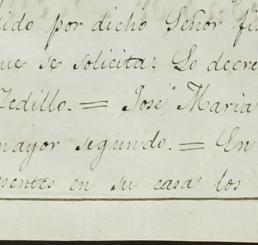 dido por dicho Señor fi
que se solicita: Lo decre
Zedillo. = José Maria
mayor segundo. = En
sentes en su casa los